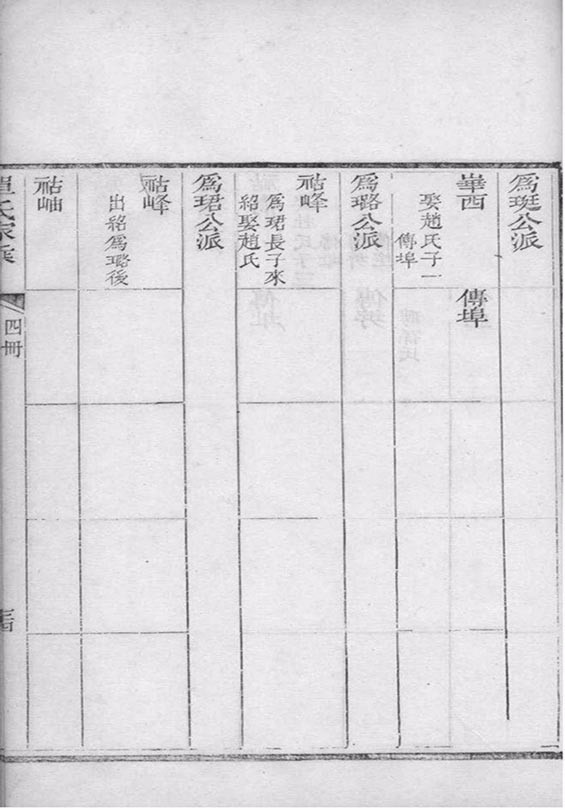 為珽公派
崋西 傳埠
娶趙氏子一
傳埠
為璐公派
祜峰
為珺長子來
紹娶趙氏
為珺公派
祜峰
出紹為璐後
祜岫
氏家乘
四冊